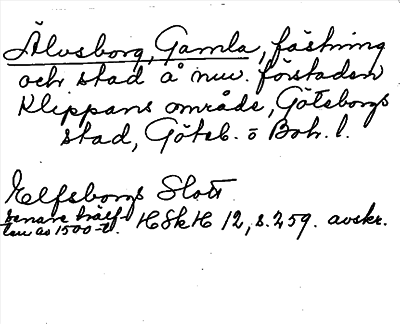 Älvsborg, Gamla, fästning
och stad å nuv. förstaden
Klippans område, Göteborgs
stad, Göteb. o Boh. l.
Elfsborgs Slott
senare hälf-
ten av 1500-t. HSkH 12, s. 259. avskr.